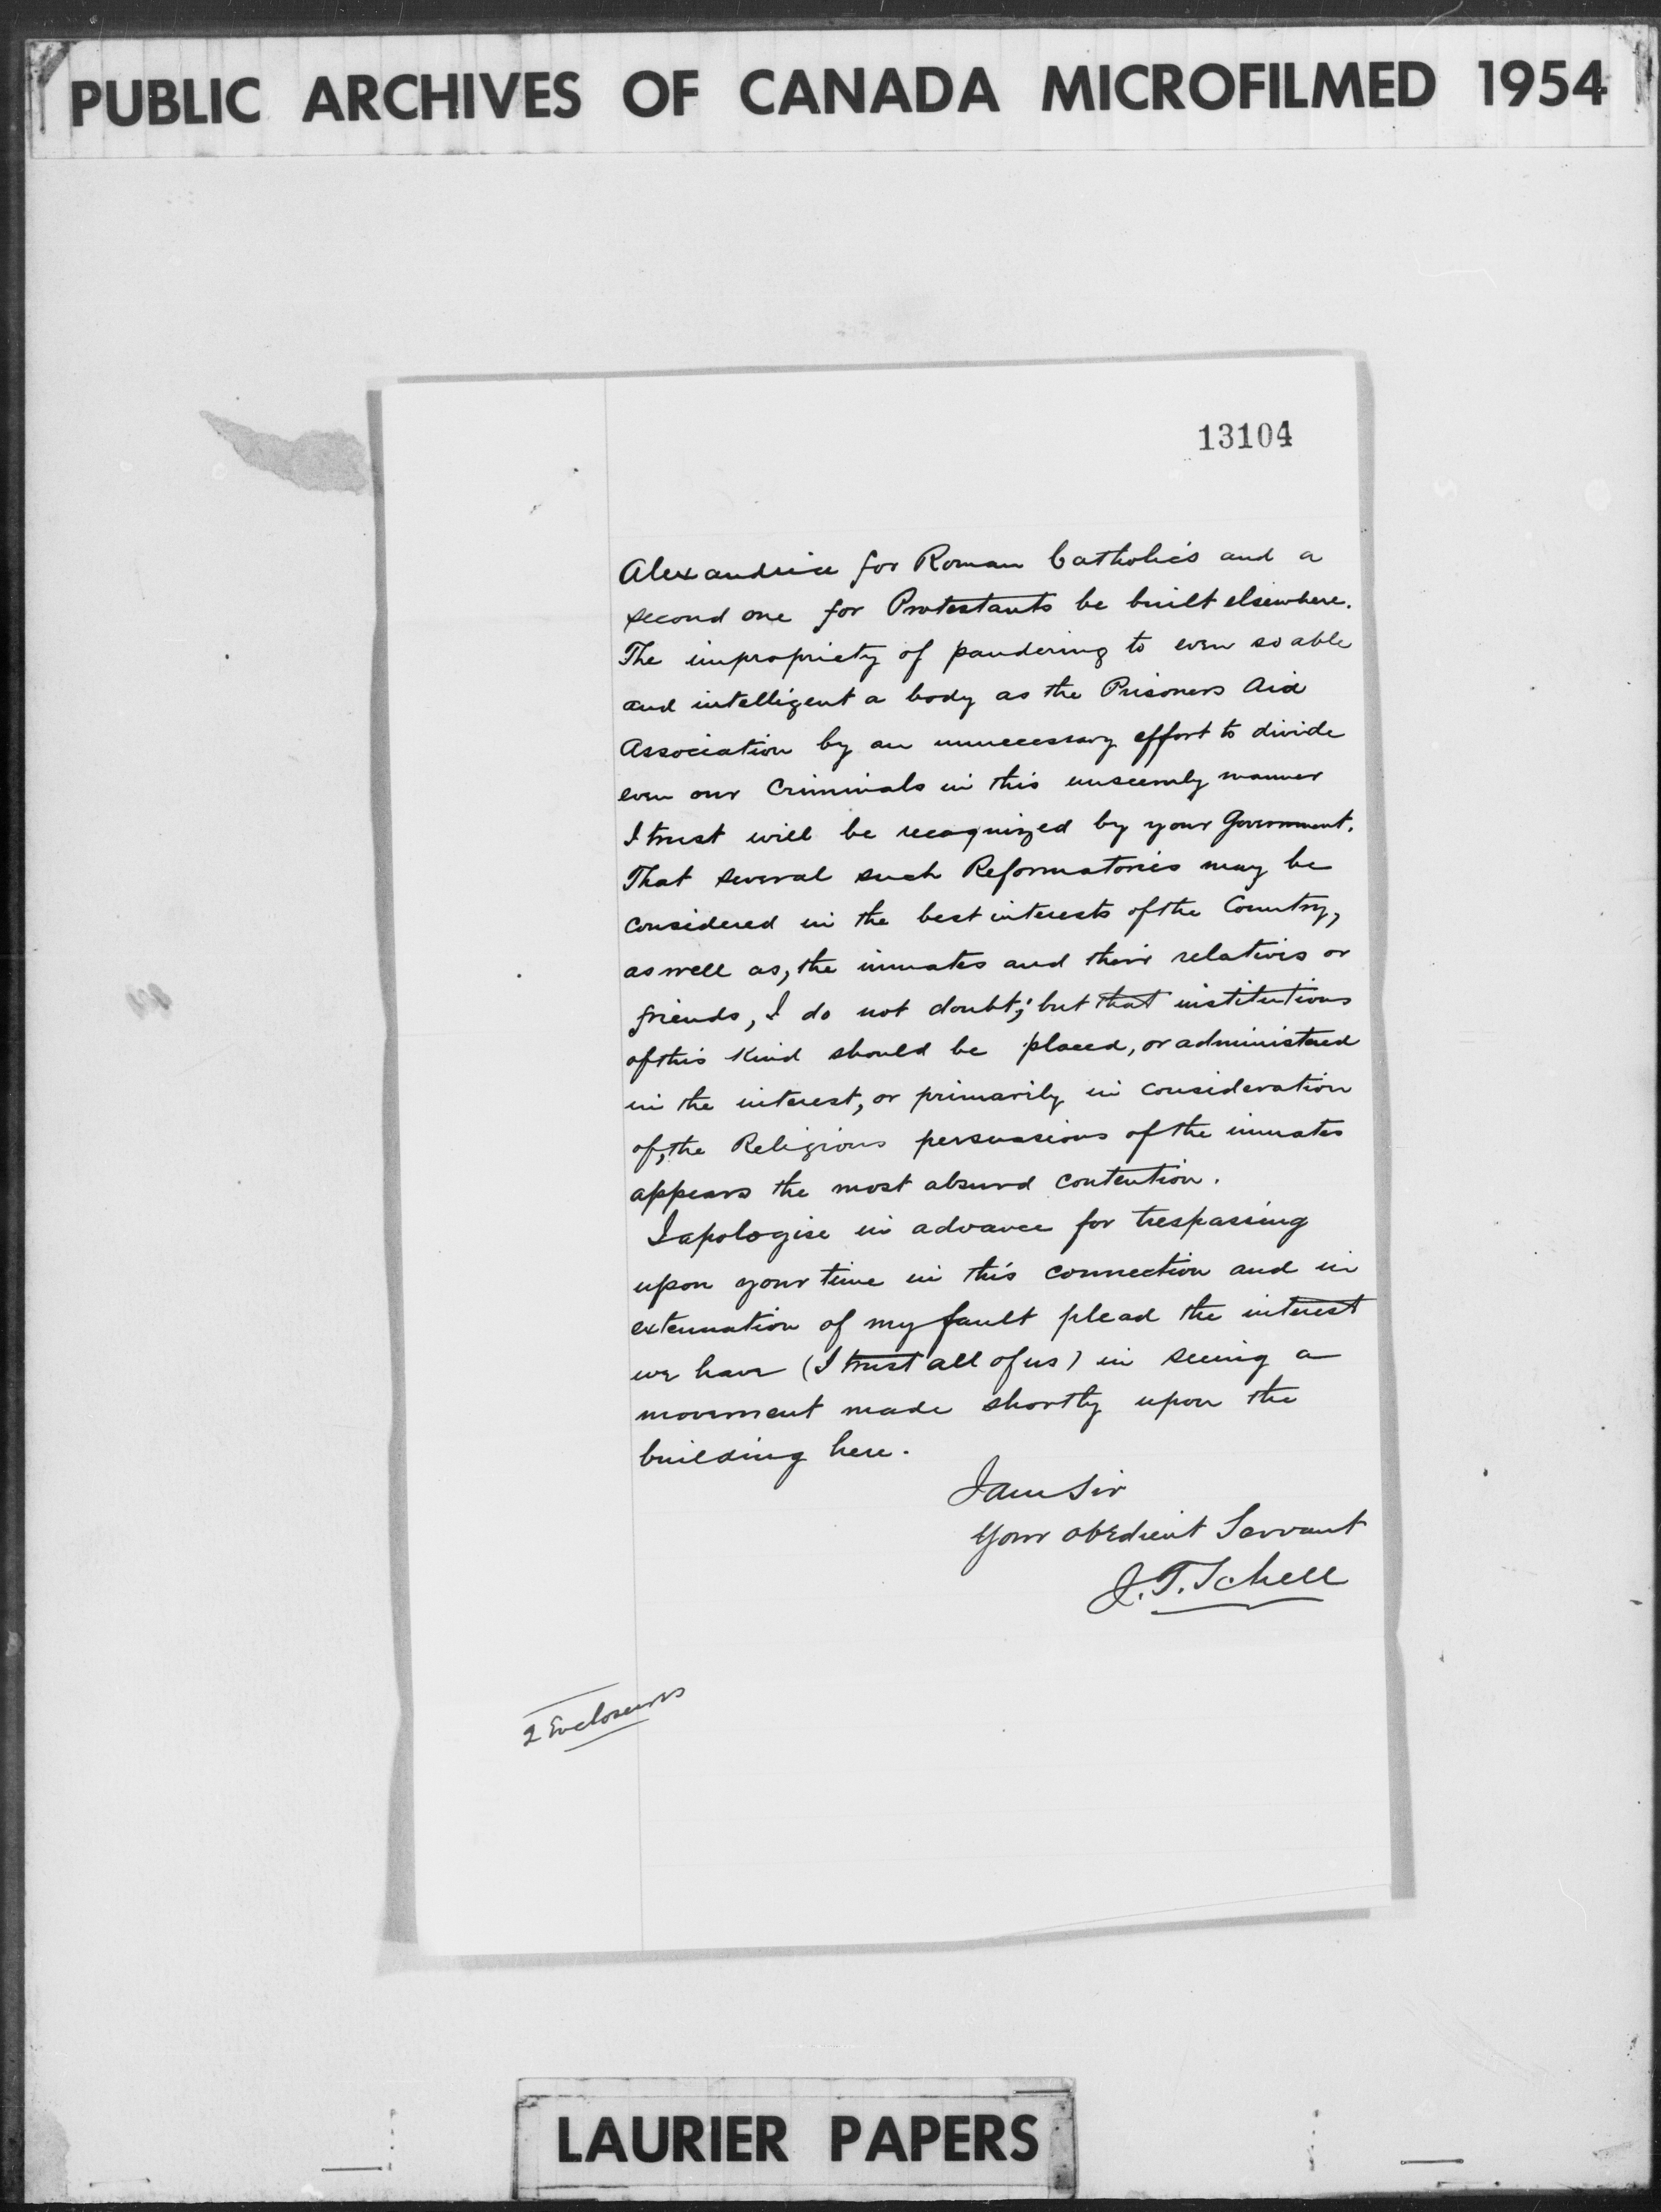 PUBLIC ARCHIVES OF CANADA MICROFILMED 1954
13104
Alexandria for Roman Catholics and a
second one for Protestants be built elsewhere.
The impropriety of pandering to even so able
and intelligent a body as the Prisoners Aid
Association by an unnecessary effort to divide
even our Criminals in this unseemly manner
I trust will be recognized by your Government.
That several such Reformatories may be
considered in the best interests of the Country,
as well as, the inmates and their relatives or
friends, I do not doubt; but that institutions
of this kind should be placed, or administered
in the interest, or primarily in consideration
of, the Religious persuasions of the inmates
appears the most absurd contention.
I apologise in advance for trespassing
upon your time in this connection and in
extenuation of my fault plead the interest
we have (I trust all of us) in seeing a
movement made shortly upon the
building here.
I am Sir
Your obedient Servant
J. T. Schell
2 Enclosures
LAURIER PAPERS